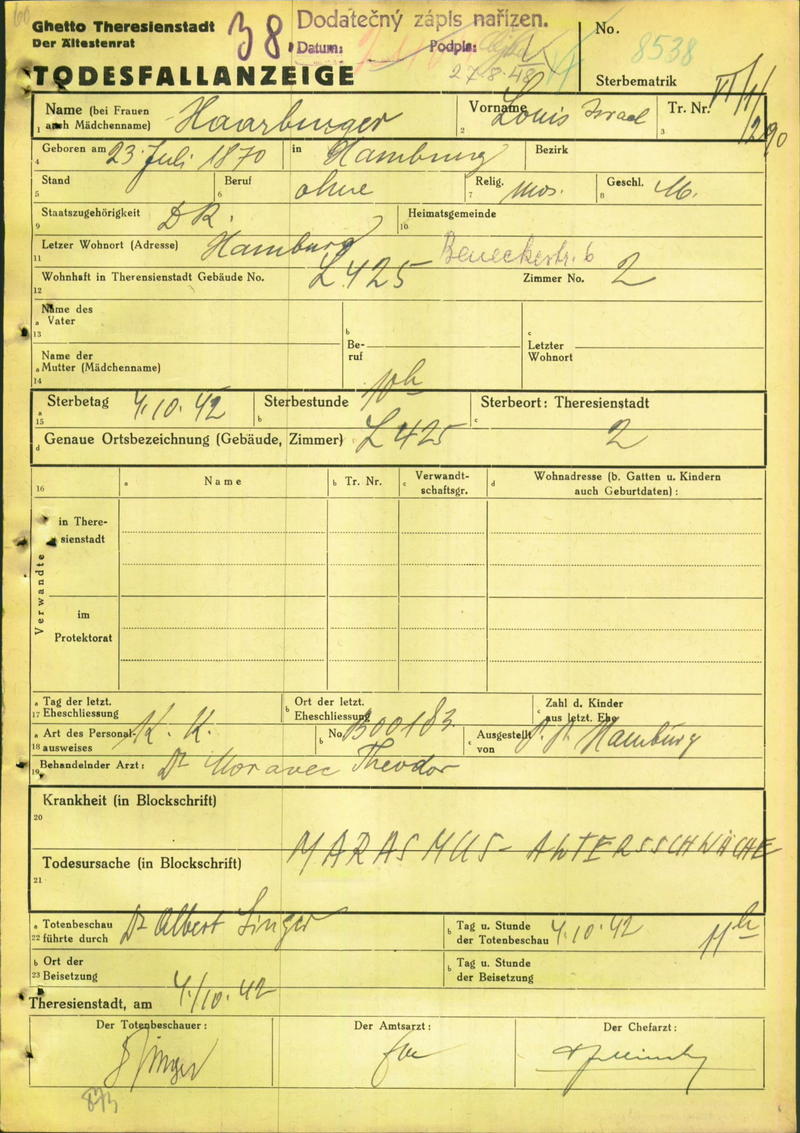 Ghetto Theresienstadt
Der Ältestenrat
38.
Dodatečný zápis nařízen.
Datum: Podpis:
27.8.48
No. 8538
Sterbematrik
TODESFALLANZEIGE
VI/1/290
1 Name (bei Frauen auch Mädchenname) Haarburger
2 Vorname Louis Israel
3 Tr. Nr.
4 Geboren am 23. Juli 1870 in Hamburg Bezirk
5 Stand
6 Beruf ohne
7 Relig. mos.
8 Geschl. M.
9 Staatszugehörigkeit D.R.
10 Heimatsgemeinde
11 Letzer Wohnort (Adresse) Hamburg Beneckestr. 6
12 Wohnhaft in Therensienstadt Gebäude No. L 425 Zimmer No. 2
13 a Name des Vater
b Beruf
c Letzter Wohnort
14 a Name der Mutter (Mädchenname)
15 a Sterbetag 4.10.42
b Sterbestunde
c Sterbeort: Theresienstadt
d Genaue Ortsbezeichnung (Gebäude, Zimmer) L 425 2
16 a Name b Tr. Nr. c Verwandtschaftsgr. d Wohnadresse (b. Gatten u. Kindern auch Geburtdaten):
Verwandte
in Theresienstadt
im Protektorat
17 a Tag der letzt. Eheschliessung
b Ort der letzt. Eheschliessung
c Zahl d. Kinder aus letzt. Ehe
18 a Art des Personalausweises K. K.
b No. B00183
c Ausgestellt von P. P. Hamburg
19 Behandelnder Arzt: Dr Moravec Theodor
20 Krankheit (in Blockschrift)
MARASMUS - ALTERSSCHWÄCHE
21 Todesursache (in Blockschrift)
22 a Totenbeschau führte durch Dr Albert Singer
b Tag u. Stunde der Totenbeschau 4.10.42 11h
23 b Ort der Beisetzung
b Tag u. Stunde der Beisetzung
Theresienstadt, am 4./10.42
Der Totenbeschauer: Der Amtsarzt: Der Chefarzt:
Singer
873